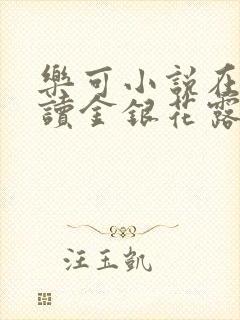 樂可小說在
讀金銀花露
汪玉凱